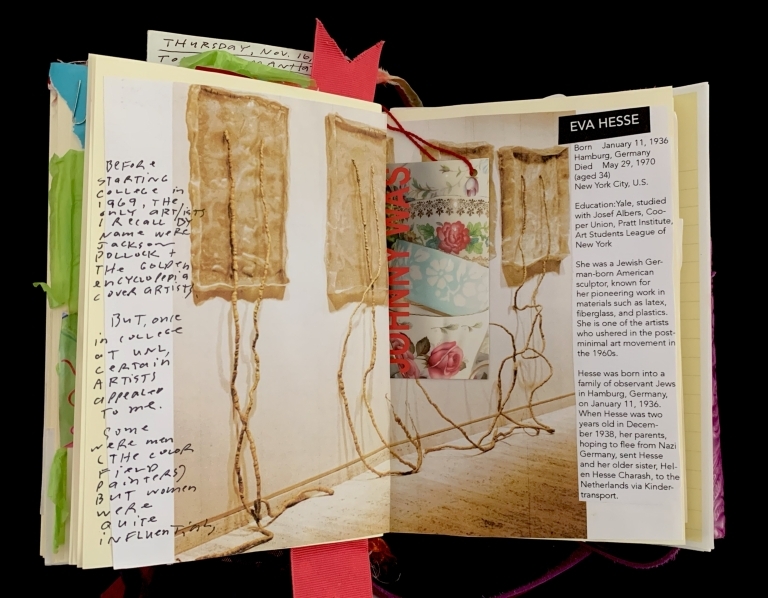 THURSDAY, NOV. 16,
BEFORE
STARTING
COLLEGE in
1969, THE
only ARTISTS
I RECALL BY
NAME WERE
JACKSON
POLLOCK +
THE GOLDEN
ENCYCLOPEDIA
COVER ARTISTS
But, once
in college
AT UNL,
CERTAIN
ARTISTS
APPEALED
TO me.
Some
were men
(THE COLOR
FIELD
PAINTERS)
BUT women
WERE
QUITE
INFLUENTIAL,
JOHNNY WAS
EVA HESSE
Born January 11, 1936
Hamburg, Germany
Died May 29, 1970
(aged 34)
New York City, U.S.
Education:Yale, studied
with Josef Albers, Coo-
per Union, Pratt Institute,
Art Students League of
New York
She was a Jewish Ger-
man-born American
sculptor, known for
her pioneering work in
materials such as latex,
fiberglass, and plastics.
She is one of the artists
who ushered in the post-
minimal art movement in
the 1960s.
Hesse was born into a
family of observant Jews
in Hamburg, Germany,
on January 11, 1936.
When Hesse was two
years old in Decem-
ber 1938, her parents,
hoping to flee from Nazi
Germany, sent Hesse
and her older sister, Hel-
en Hesse Charash, to the
Netherlands via Kinder-
transport.